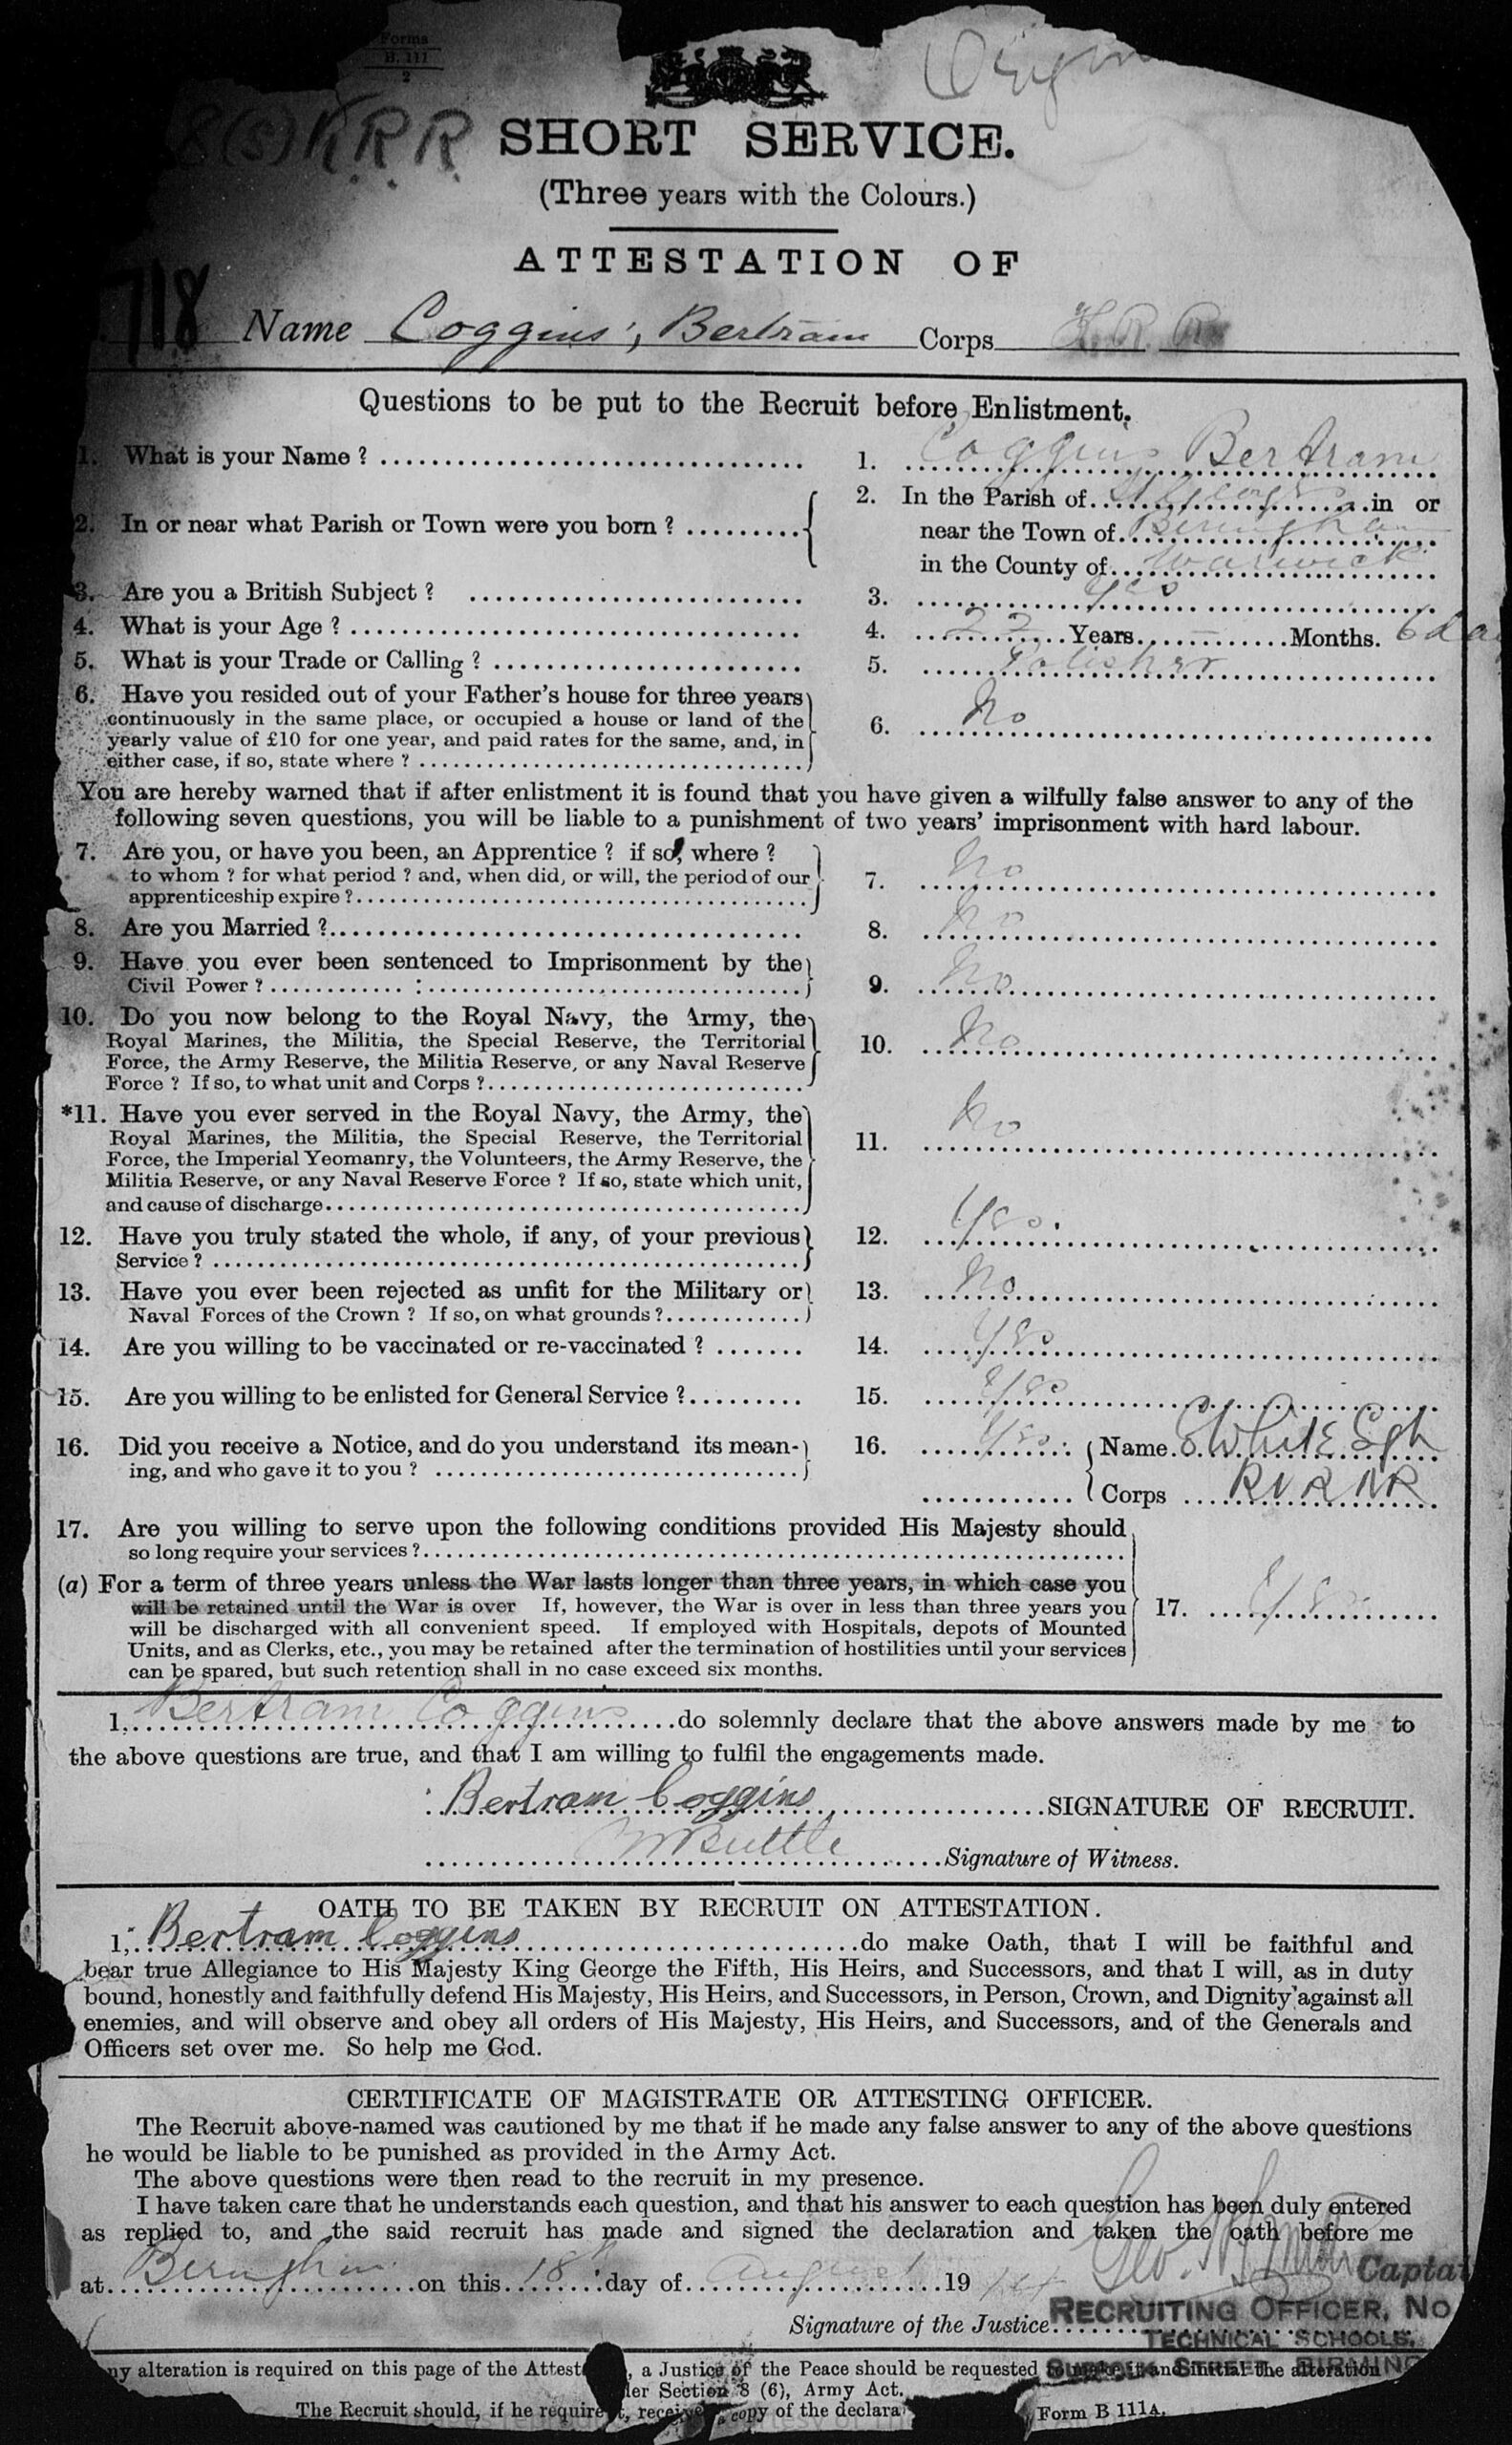 Forms
B. 111
2
8(S) K.R.R.
SHORT SERVICE.
(Three years with the Colours.)
ATTESTATION OF
718 Name Coggins, Bertram Corps K. R. R
Questions to be put to the Recruit before Enlistment.
1. What is your Name ? 1. Coggins Bertram
2. In or near what Parish or Town were you born ? 2. In the Parish of in or
near the Town of
in the County of Warwick
3. Are you a British Subject ? 3. Yes
4. What is your Age ? 4. 22 Years — Months. 6 da
5. What is your Trade or Calling ? 5. Polisher
6. Have you resided out of your Father's house for three years
continuously in the same place, or occupied a house or land of the
yearly value of £10 for one year, and paid rates for the same, and, in
either case, if so, state where ? 6. No
You are hereby warned that if after enlistment it is found that you have given a wilfully false answer to any of the
following seven questions, you will be liable to a punishment of two years' imprisonment with hard labour.
7. Are you, or have you been, an Apprentice ? if so, where ?
to whom ? for what period ? and, when did, or will, the period of our
apprenticeship expire ? 7. No
8. Are you Married ? 8. No
9. Have you ever been sentenced to Imprisonment by the
Civil Power ? 9. No
10. Do you now belong to the Royal Navy, the Army, the
Royal Marines, the Militia, the Special Reserve, the Territorial
Force, the Army Reserve, the Militia Reserve, or any Naval Reserve
Force ? If so, to what unit and Corps ? 10. No
*11. Have you ever served in the Royal Navy, the Army, the
Royal Marines, the Militia, the Special Reserve, the Territorial
Force, the Imperial Yeomanry, the Volunteers, the Army Reserve, the
Militia Reserve, or any Naval Reserve Force ? If so, state which unit,
and cause of discharge 11. No
12. Have you truly stated the whole, if any, of your previous
Service ? 12. Yes.
13. Have you ever been rejected as unfit for the Military or
Naval Forces of the Crown ? If so, on what grounds ? 13. No
14. Are you willing to be vaccinated or re-vaccinated ? 14. Yes
15. Are you willing to be enlisted for General Service ? 15. Yes
16. Did you receive a Notice, and do you understand its mean-
ing, and who gave it to you ? 16. Yes Name White
Corps
17. Are you willing to serve upon the following conditions provided His Majesty should
so long require your services ?
(a) For a term of three years unless the War lasts longer than three years, in which case you
will be retained until the War is over If, however, the War is over in less than three years you 17. Yes
will be discharged with all convenient speed. If employed with Hospitals, depots of Mounted
Units, and as Clerks, etc., you may be retained after the termination of hostilities until your services
can be spared, but such retention shall in no case exceed six months.
I, Bertram Coggins do solemnly declare that the above answers made by me to
the above questions are true, and that I am willing to fulfil the engagements made.
Bertram Coggins SIGNATURE OF RECRUIT.
Buttle Signature of Witness.
OATH TO BE TAKEN BY RECRUIT ON ATTESTATION.
I, Bertram Coggins do make Oath, that I will be faithful and
bear true Allegiance to His Majesty King George the Fifth, His Heirs, and Successors, and that I will, as in duty
bound, honestly and faithfully defend His Majesty, His Heirs, and Successors, in Person, Crown, and Dignity against all
enemies, and will observe and obey all orders of His Majesty, His Heirs, and Successors, and of the Generals and
Officers set over me. So help me God.
CERTIFICATE OF MAGISTRATE OR ATTESTING OFFICER.
The Recruit above-named was cautioned by me that if he made any false answer to any of the above questions
he would be liable to be punished as provided in the Army Act.
The above questions were then read to the recruit in my presence.
I have taken care that he understands each question, and that his answer to each question has been duly entered
as replied to, and the said recruit has made and signed the declaration and taken the oath before me
at on this 18 day of August 19 14 Geo. Captai
Signature of the Justice RECRUITING OFFICER, No
TECHNICAL SCHOOLS,
SUFFOLK STREET BIRMING
ny alteration is required on this page of the Attest , a Justice of the Peace should be requested to make it and initial the alteration
der Section 8 (6), Army Act.
The Recruit should, if he require it, receive a copy of the declara Form B 111A.